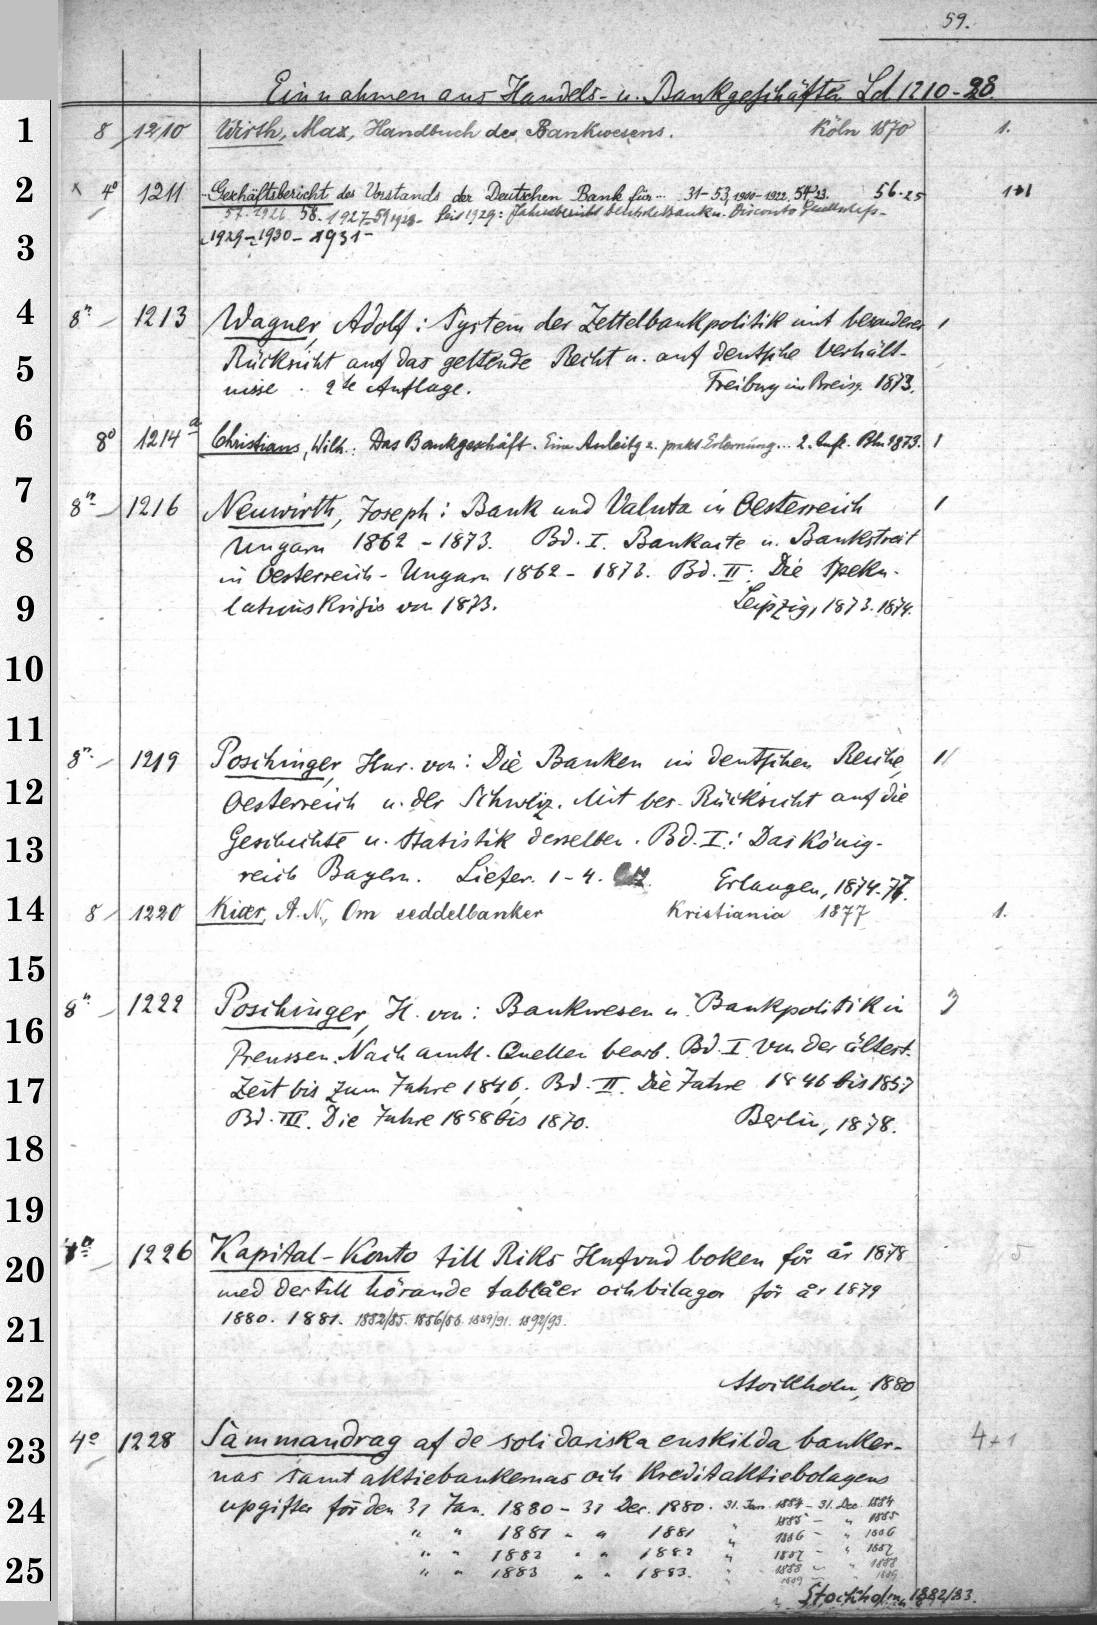 59.
Einnahmen aus Handels- u. Bankgeschäften Ld 1210-28
1 8 1210 Wirth, Max, Handbuch des Bankwesens. Köln 1870 1.
2 4° 1211 Geschäftsbericht des Vorstands der Deutschen Bank für... 31-53, 1900-1922, 54 23. 56-25 1+1
57.-1926. 58.-1927-59 1928- Seit 1929: Jahresbericht Deutsche Bank u. Disconto Gesellsch.-
3 1929-1930-1931-
4 8° 1213 Wagner, Adolf: System der Zettelbankpolitik mit besonderer 1
5 Rücksicht auf das geltende Recht u. auf deutsche Verhält-
nisse. 2te Auflage. Freiburg im Breisg. 1873.
6 8° 1214a Christians, Wilh.: Das Bankgeschäft. Eine Anleitg z. prakt. Erlernung... 2. Aufl. Bln. 1873. 1
7 8° 1216 Neuwirth, Joseph: Bank und Valuta in Oesterreich 1
8 Ungarn 1862-1873. Bd. I. Bankacte u. Bankstreit
in Oesterreich-Ungarn 1862-1873. Bd. II: Die Speku-
9 lationskrisis von 1873. Leipzig, 1873. 1874.
10
11
8° 1219 Poschinger, Hnr. von: Die Banken im deutschen Reiche,
12 Oesterreich u. der Schweiz. Mit bes. Rücksicht auf die
13 Geschichte u. Statistik derselben. Bd. I: Das König-
reich Bayern. Liefer. 1-4. Erlangen, 1874-77.
14 8 1220 Kiær, A. N., Om seddelbanker Kristiania 1877 1.
15
8° 1222 Poschinger, H. von: Bankwesen u. Bankpolitik in 3
16 Preussen. Nach amtl. Quellen bearb. Bd. I Von der ältest.
17 Zeit bis zum Jahre 1846. Bd. II. Die Jahre 1846 bis 1857
Bd. III. Die Jahre 1858 bis 1870. Berlin, 1878.
18
19
1226 Kapital-Konto till Riks Hufvud boken för år 1878 5
20 med dertill hörande tablåer och bilagor för år 1879
21 1880. 1881. 1882/85. 1886/88. 1889/91. 1892/93.
22 Stockholm, 1880
23 4° 1228 Sammandrag af de solidariska enskilda banker- 4+1
nas samt aktiebankernas och Kreditaktiebolagens
24 uppgifter för den 31 Jan. 1880 - 31 Dec. 1880. 31. Jan. 1884 - 31. Dec. 1884
" " 1881 - " 1881 " 1885 - " 1885
" " 1882 " " 1882 " 1886 - " 1886
25 " " 1883 " " 1883. " 1887 - " 1887
" 1888 - " 1888
" 1889 - " 1889
Stockholm, 1882/83.